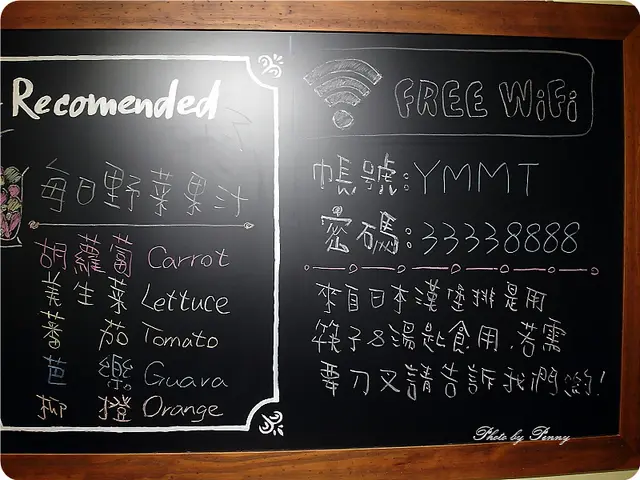 Recomended
每日野菜果汁
胡蘿蔔 Carrot
美生菜 Lettuce
蕃茄 Tomato
芭樂 Guava
柳橙 Orange
FREE WiFi
帳號:YMMT
密碼:33338888
來自日本漢堡排是用
筷子&湯匙食用.若需
要刀叉請告訴我們喲!
Photo by Penny